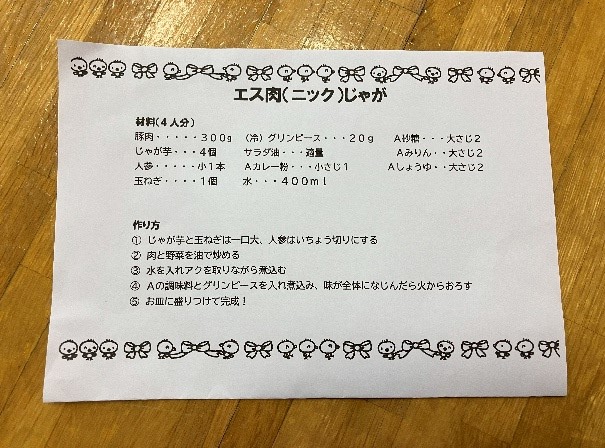 エス肉(ニック)じゃが
材料(4人分)
豚肉・・・・・300g (冷)グリンピース・・・20g A砂糖・・・大さじ2
じゃが芋・・・4個 サラダ油・・・適量 Aみりん・・大さじ2
人参・・・・・小1本 Aカレー粉・・・小さじ1 Aしょうゆ・・大さじ2
玉ねぎ・・・・1個 水・・・400ml
作り方
① じゃが芋と玉ねぎは一口大、人参はいちょう切りにする
② 肉と野菜を油で炒める
③ 水を入れアクを取りながら煮込む
④ Aの調味料とグリンピースを入れ煮込み、味が全体になじんだら火からおろす
⑤ お皿に盛りつけて完成！